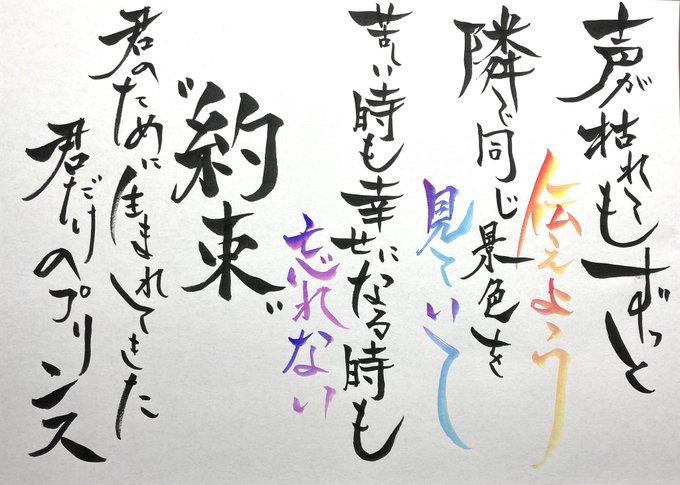 声が枯れてもずっと
伝えよう
隣で同じ景色を
見ていて
苦しい時も幸せになる時も
忘れない
"約束"
君のために生まれてきた
君だけのプリンス